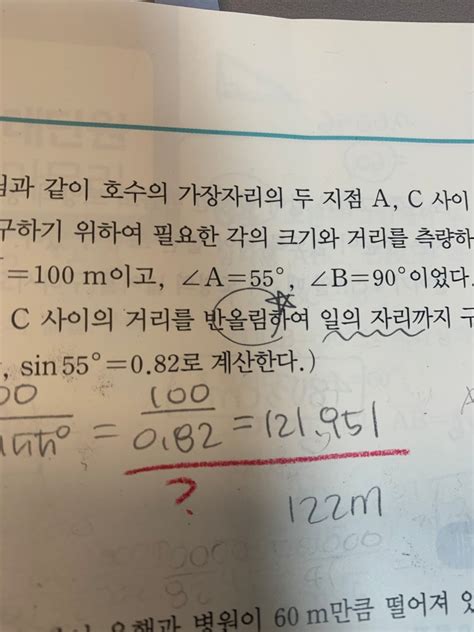 과 같이 호수의 가장자리의 두 지점 A, C 사이
구하기 위하여 필요한 각의 크기와 거리를 측량하
=100 m이고, ∠A=55°, ∠B=90°이었다.
C 사이의 거리를 반올림하여 일의 자리까지 구
, sin 55°=0.82로 계산한다.)
= 100/0.82 = 121.951
?
122m
병원이 60 m만큼 떨어져 있